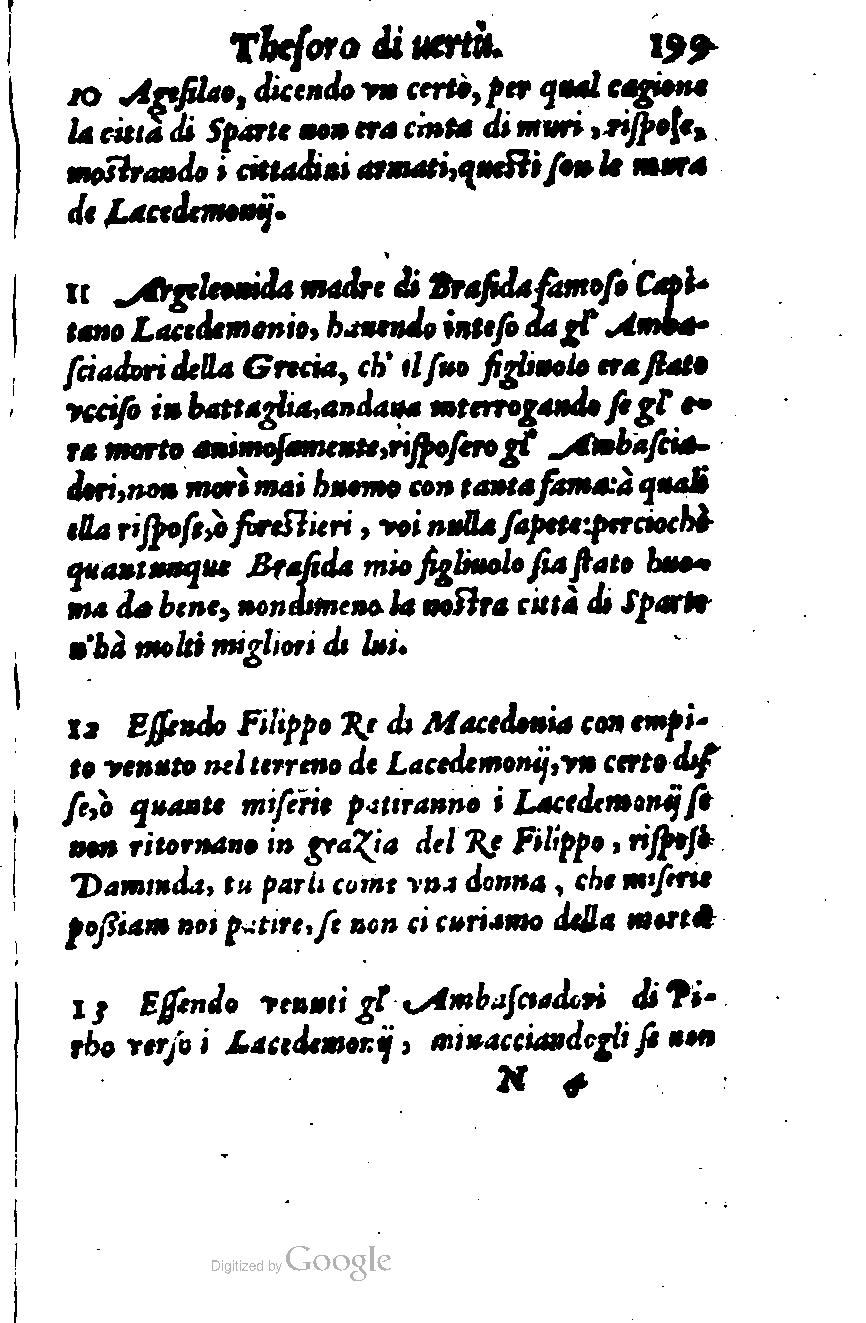 Theſoro di uertù. 199
10 Ageſilao, dicendo vn certò, per qual cagione
la città di Sparte non era cinta di muri, riſpoſe,
moſtrando i cittadini armati, queſti ſon le mura
de Lacedemonij.
11 Argeleonida madre di Braſida famoſo Capi-
tano Lacedemonio, hauendo inteſo da gl' Amba-
ſciadori della Grecia, ch' il ſuo figliuolo era ſtato
vcciſo in battaglia, andaua interrogando ſe gl' e-
ra morto animoſamente, riſpoſero gl' Ambaſcia-
dori, non morì mai huomo con tanta fama: à quali
ella riſpoſe, ò foreſtieri, voi nulla ſapete: perciochè
quantunque Braſida mio figliuolo ſia ſtato huo-
ma da bene, nondimeno la noſtra città di Sparte
n'hà molti migliori di lui.
12 Eſſendo Filippo Re di Macedonia con empi-
to venuto nel terreno de Lacedemonij, vn certo diſ-
ſe, ò quante miſerie patiranno i Lacedemonij ſe
non ritornano in grazia del Re Filippo, riſpoſe
Daminda, tu parli come vna donna, che miſerie
poßiam noi patire, ſe non ci curiamo della morte
13 Eſſendo venuti gl' Ambaſciadori di Pi-
rho verſo i Lacedemonij, minacciandogli ſe non
N 4
Digitized by Google